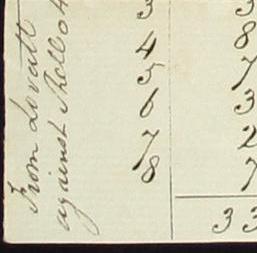 From Lovatt
against Shelbot
3 3
4 8
3 7
6 3
7 2
8 7
33